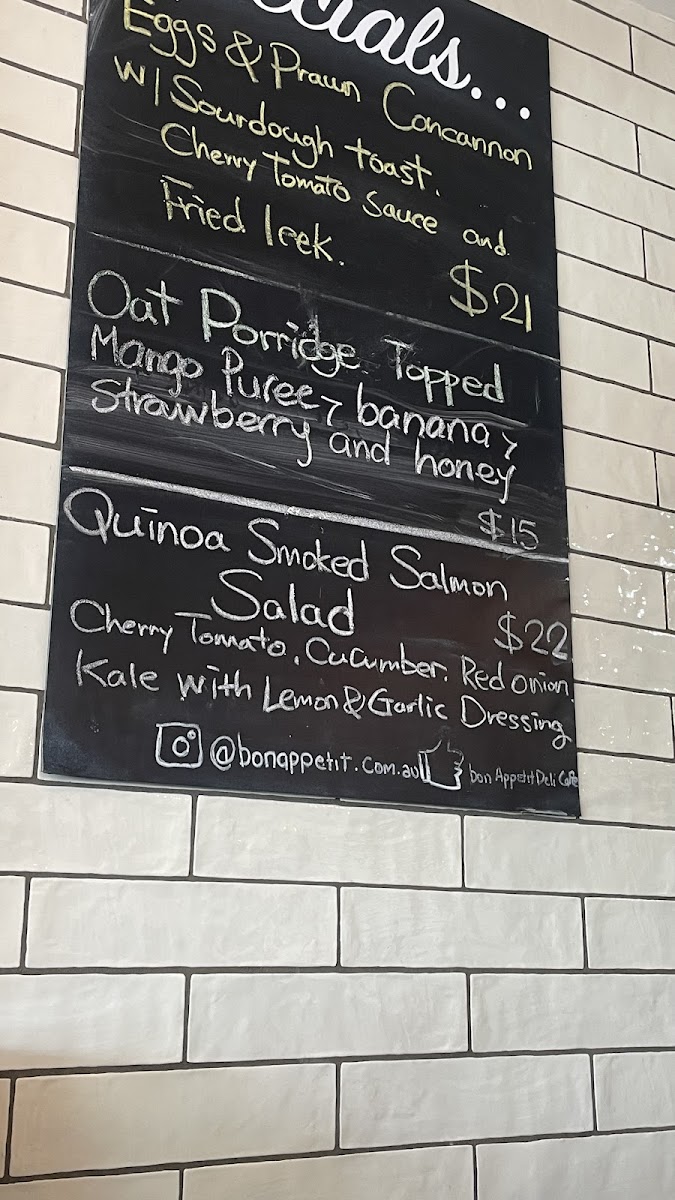 Eggs & Prawn Concannon
w/ Sourdough toast.
Cherry Tomato Sauce and
Fried leek.
$21
Oat Porridge Topped
Mango Puree, banana,
Strawberry and honey
$15
Quinoa Smoked Salmon
Salad
$22
Cherry Tomato, Cucumber, Red onion,
Kale with Lemon & Garlic Dressing
@bonappetit.com.au bon Appetit Deli Cafe